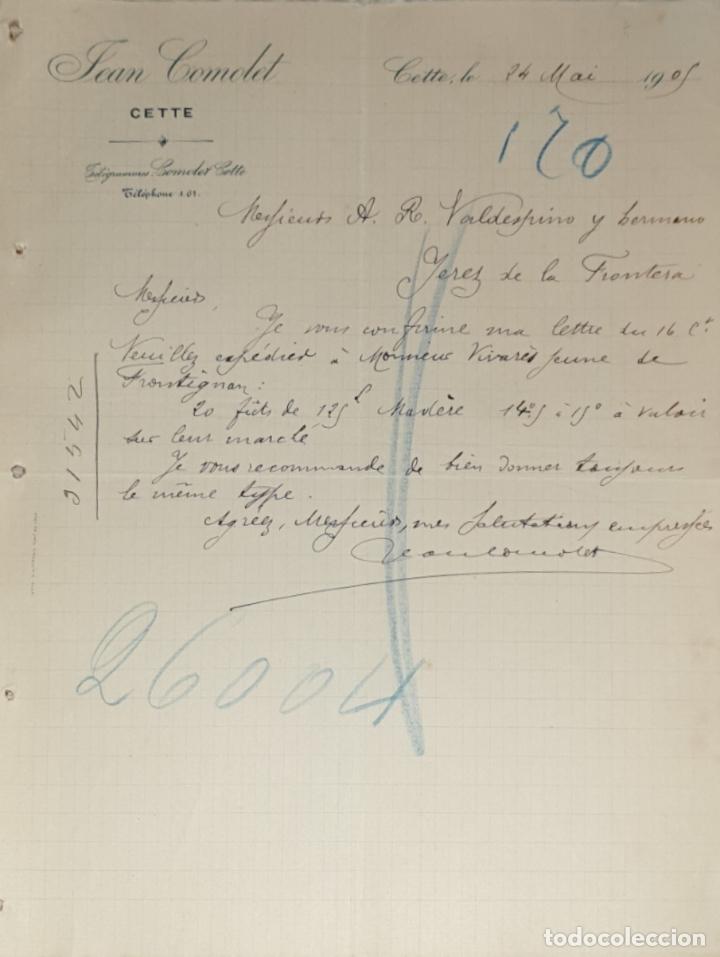 Jean Comolet
CETTE
Télégrammes: Comolet Cette
Téléphone 1.01.
Cette, le 24 Mai 1905
170
Messieurs A. R. Valdespino y hermano
Jerez de la Frontera
Messieurs,
Je vous confirme ma lettre du 16 Ct
Veuillez expédier à Monsieur Vivarès jeune de
Frontignan:
20 fûts de 125l Madère 14°5 à 15° à valoir
sur leur marché
Je vous recommande de bien donner toujours
le même type.
Agréez, Messieurs, mes salutations empressées
Jean Comolet
21542
26004
todocoleccion